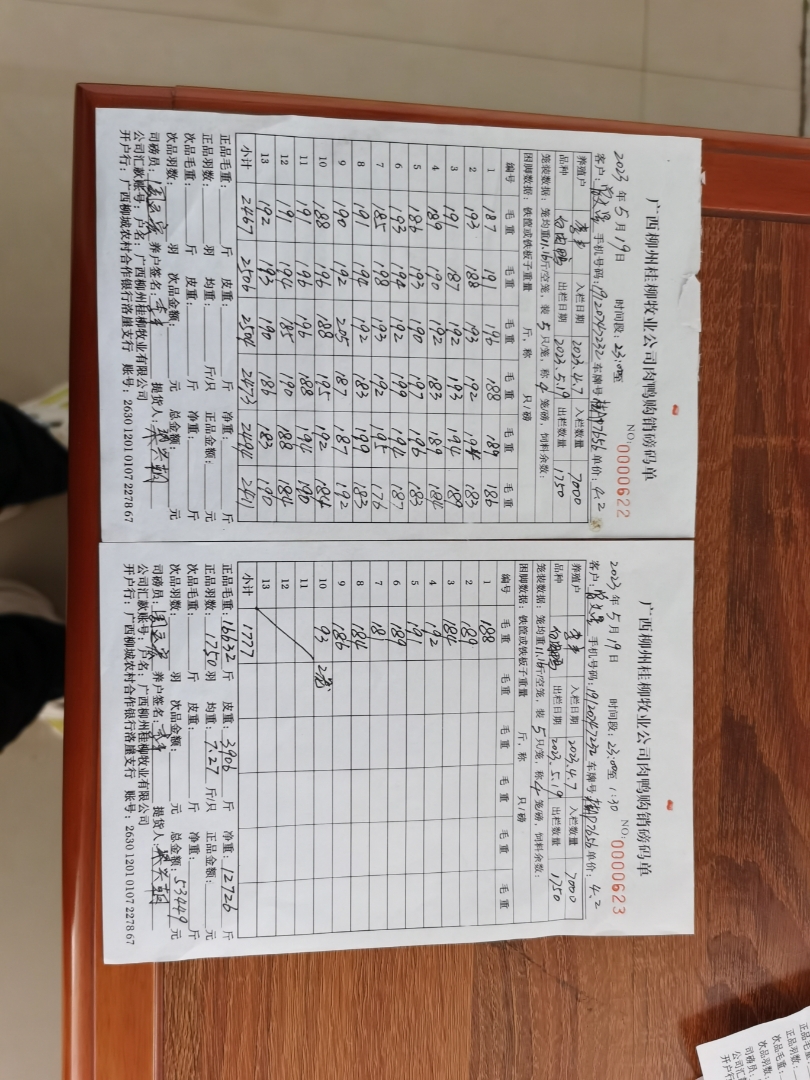 广西柳州桂柳牧业公司肉鸭购销磅码单
NO: 0000622
2023年5月19日 时间段: 23:00至
客户: 手机号码: 19120747232 车牌号 单价: 4.2
养殖户 李 入栏日期 2023.4.7 入栏数量 7000
品种 白肉鸭 出栏日期 2023.5.19 出栏数量 1750
笼装数据: 笼均重11.16斤/空笼, 装5只/笼, 称4笼/磅, 饲料余数:
困脚数据: 铁筐或铁板子重量 斤, 称 只/磅
编号 毛重 毛重 毛重 毛重 毛重 毛重
1 187 191 196 188 189 186
2 193 188 193 192 194 183
3 191 187 192 193 194 189
4 189 190 192 183 189 184
5 186 193 190 197 196 183
6 193 194 192 199 194 187
7 185 198 193 192 195 176
8 191 194 192 183 199 183
9 190 192 205 187 187 192
10 188 196 188 195 192 184
11 191 196 196 188 194 190
12 191 194 185 190 188 184
13 192 193 190 186 183 190
小计 2467 2506 2504 2473 2494 2411
正品毛重: 斤 皮重: 斤 净重: 斤
正品羽数: 羽 均重: 斤/只 正品金额: 元
次品毛重: 斤 皮重: 斤 净重: 斤
次品羽数: 羽 次品金额: 元 总金额: 元
司磅员: 养户签名: 提货人:
公司汇款账号: 户名: 广西柳州桂柳牧业有限公司
开户行: 广西柳城农村合作银行洛崖支行 账号: 2630 1201 0107 2278 67
广西柳州桂柳牧业公司肉鸭购销磅码单
NO: 0000623
2023年5月19日 时间段: 23:00至1:30
客户: 手机号码: 19120747232 车牌号 单价: 4.2
养殖户 李 入栏日期 2023.4.7 入栏数量 7000
品种 白肉鸭 出栏日期 2023.5.19 出栏数量 1750
笼装数据: 笼均重11.16斤/空笼, 装5只/笼, 称4笼/磅, 饲料余数:
困脚数据: 铁筐或铁板子重量 斤, 称 只/磅
编号 毛重 毛重 毛重 毛重 毛重 毛重
1 188
2 189
3 184
4 192
5 191
6 189
7 181
8 184
9 186
10 93 2笼
11
12
13
小计 1777
正品毛重: 16632斤 皮重: 3906斤 净重: 12726斤
正品羽数: 1750羽 均重: 7.27斤/只 正品金额: 元
次品毛重: 斤 皮重: 斤 净重: 斤
次品羽数: 羽 次品金额: 元 总金额: 53449元
司磅员: 养户签名: 提货人:
公司汇款账号: 户名: 广西柳州桂柳牧业有限公司
开户行: 广西柳城农村合作银行洛崖支行 账号: 2630 1201 0107 2278 67
正品毛重
正品羽数:
次品毛重:
次品羽数:
司磅员:
公司汇
开户行